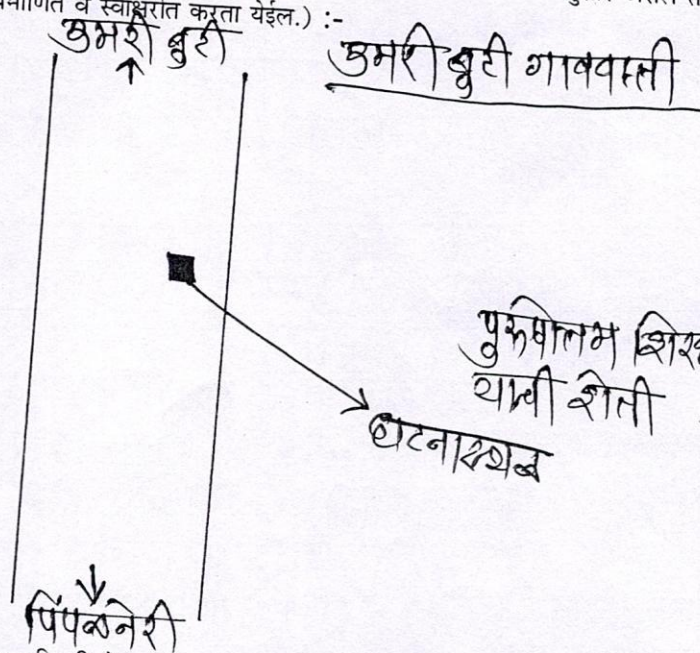 व स्वाक्षरीत करता येईल.) :-
उमरी बुटी
उमरी बुटी गाववस्ती
पुरुषोत्तम
यांची शेती
घटनास्थळ
पिंपळनेरी